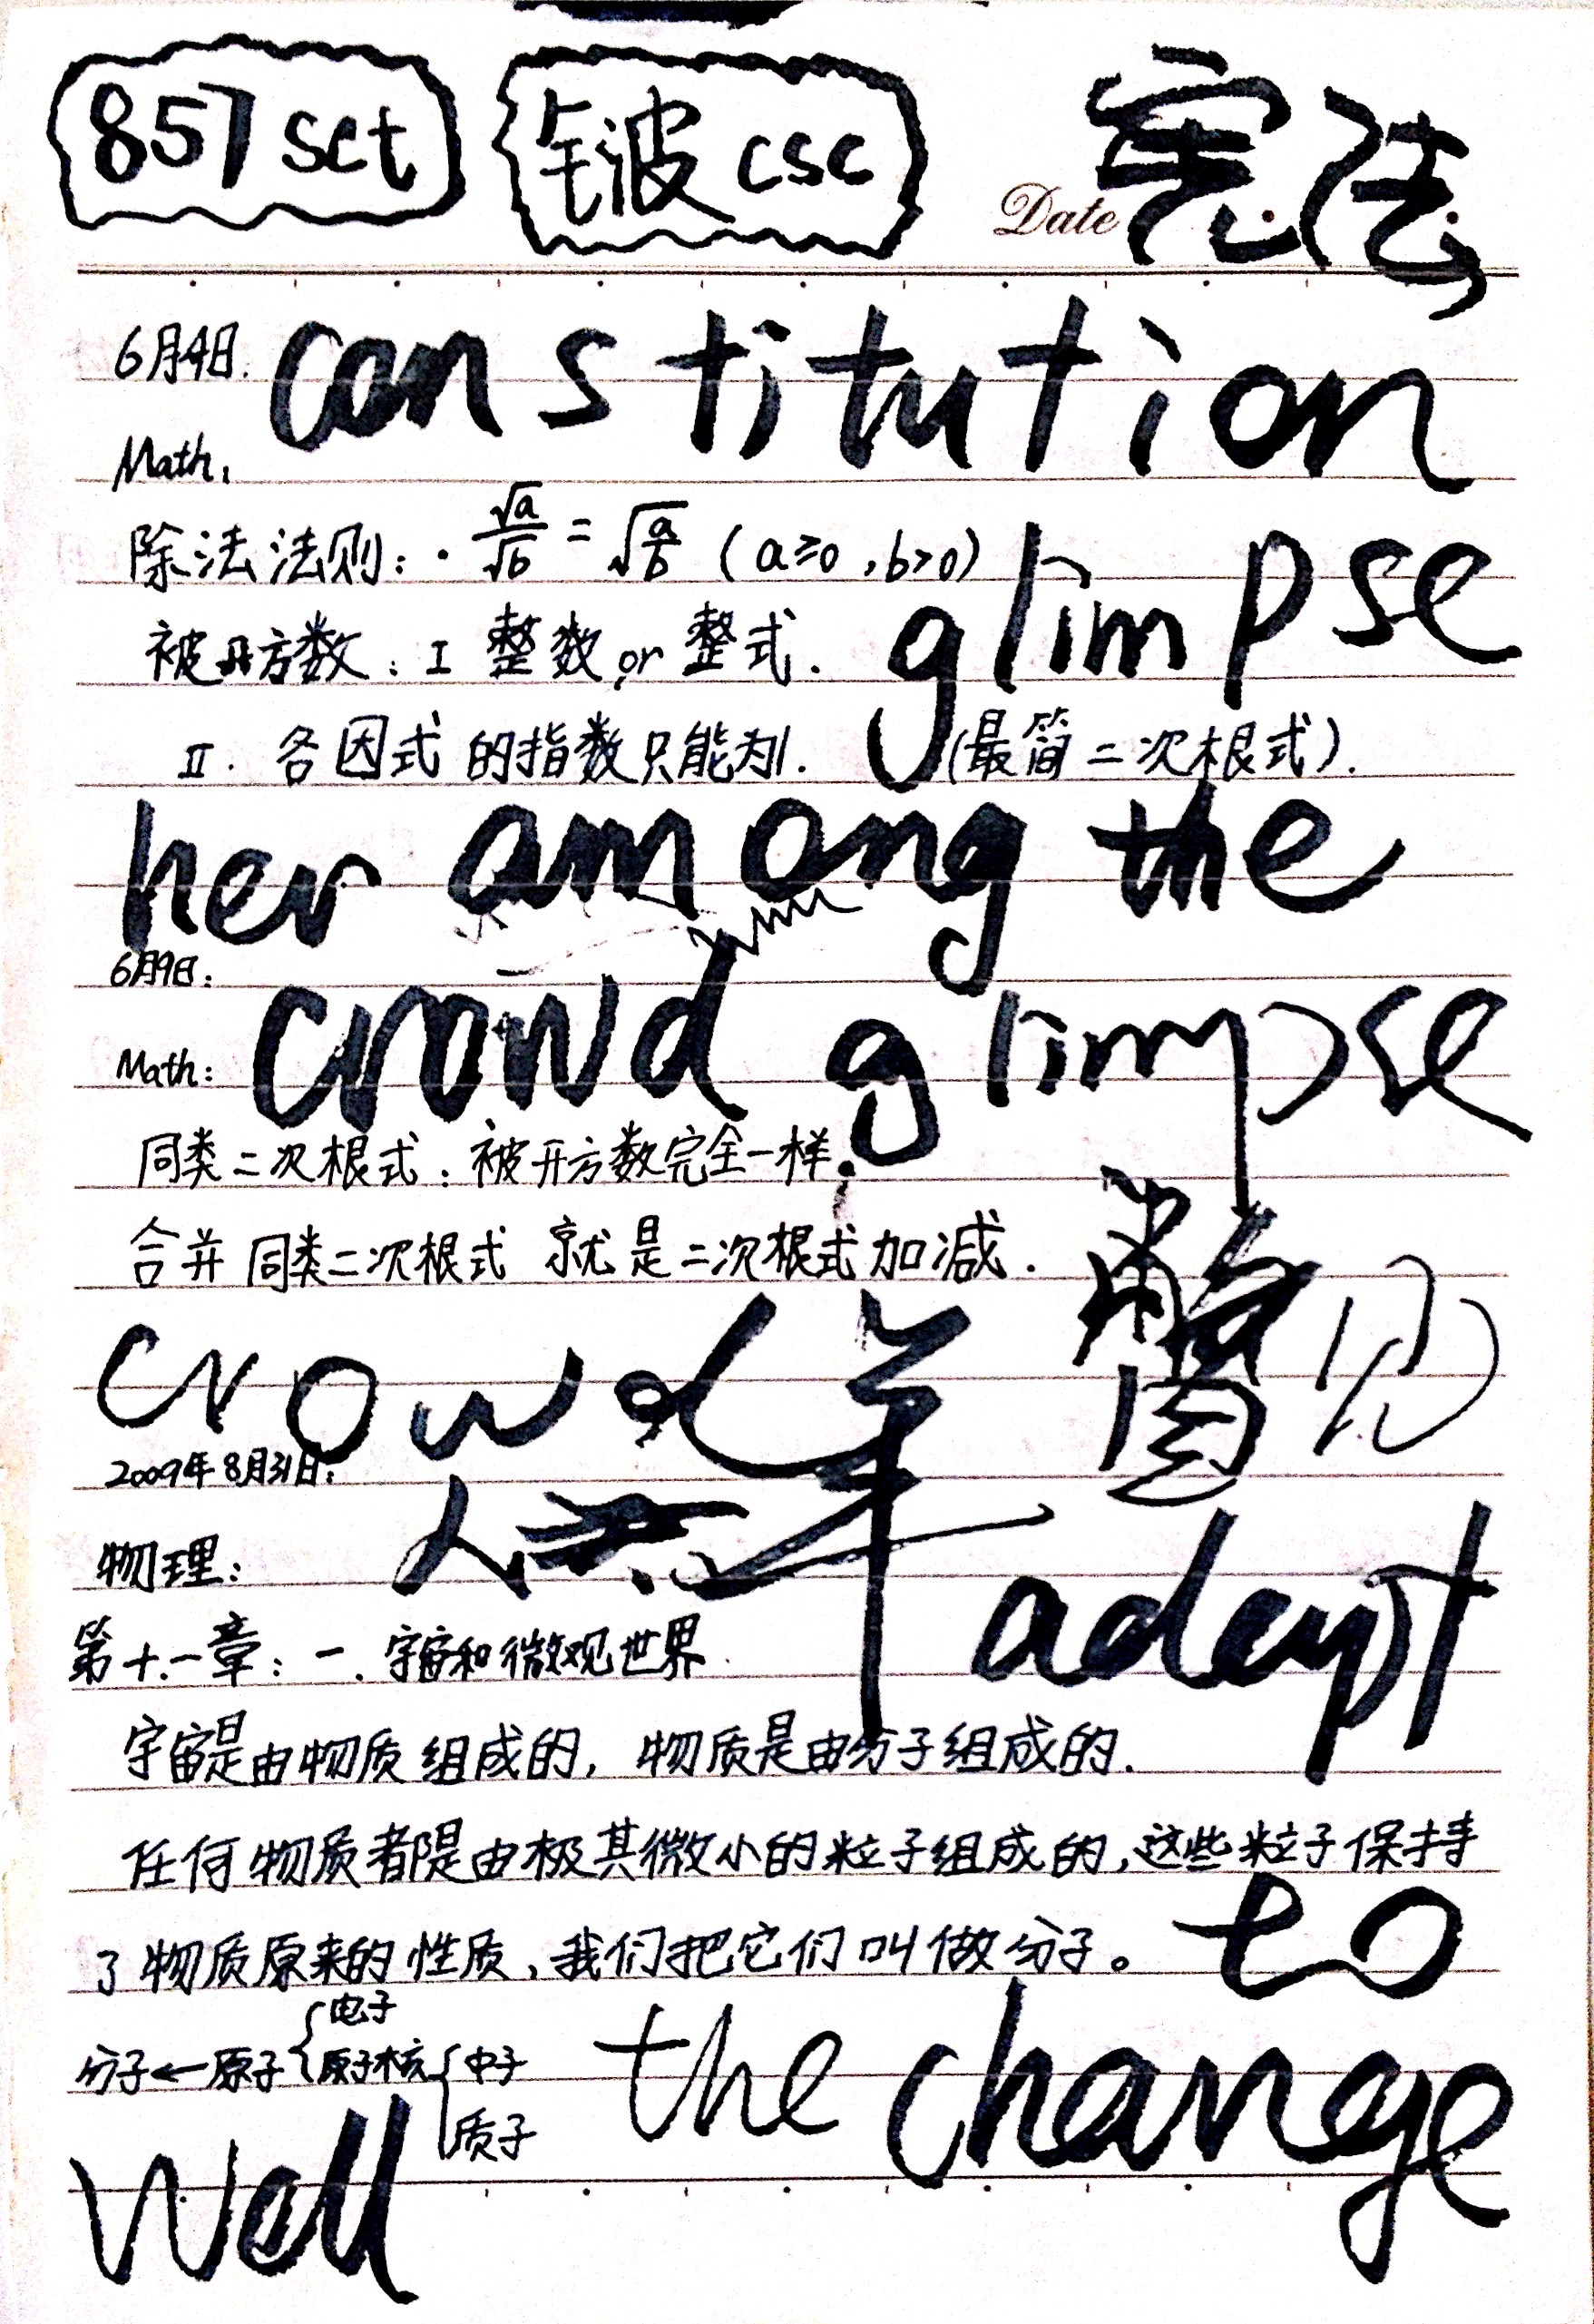 857 sct
波 csc
宪法
Date
6月4日.
constitution
Math:
除法法则: · √a/√b = √(a/b) (a≥0, b>0)
glimpse
被开方数: I 整数 or 整式.
II. 各因式的指数只能为1. (最简二次根式).
her among the
6月9日:
crowd glimpse
Math:
同类二次根式: 被开方数完全一样.
合并同类二次根式 就是二次根式加减.
crowd
2009年8月31日:
人
物理:
adept
第十一章: 一. 宇宙和微观世界
宇宙是由物质组成的, 物质是由分子组成的.
任何物质都是由极其微小的粒子组成的,这些粒子保持
to
了物质原来的性质、我们把它们叫做分子。
分子←原子{电子 原子核{中子 质子
the change
Well